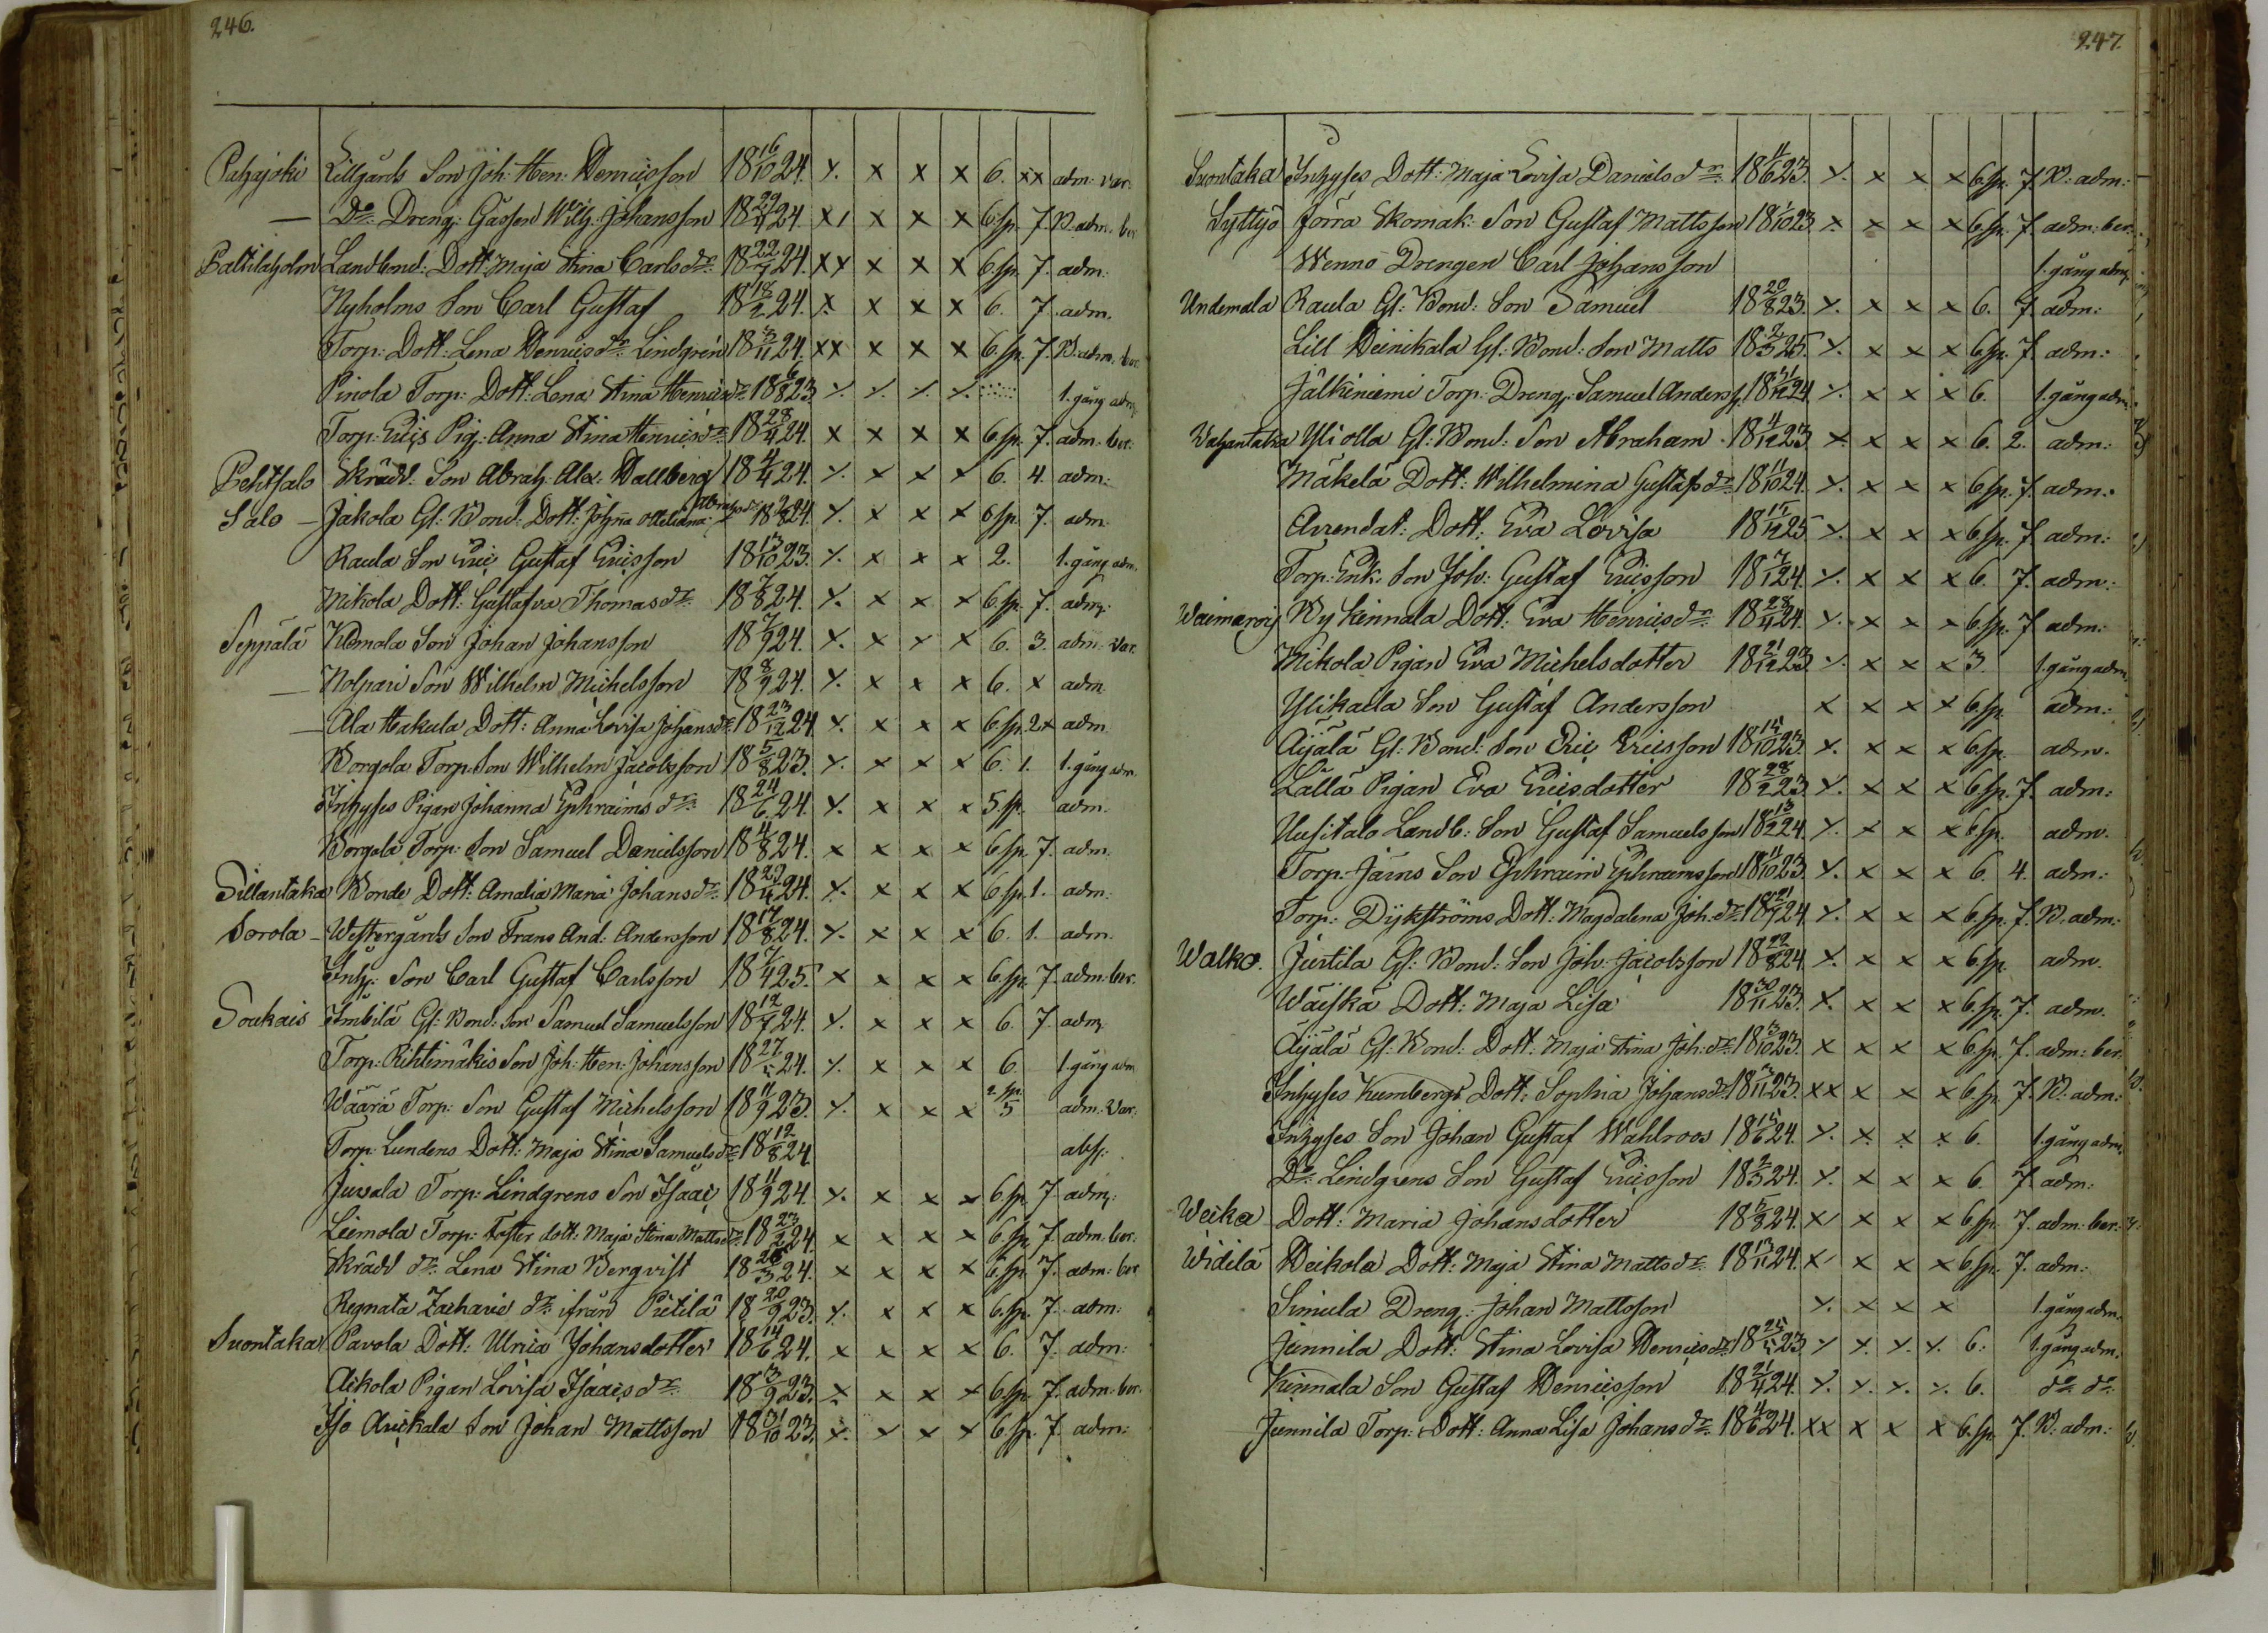 246.
Pahajoki Lillgårds Son Joh: Hen: Henricsson 18 16/10 24. x x x x 6. xx adm: var:
— Do: Dreng: Gåsson Wilh: Johansson 18 29/4 24 x x x x 6 sp. 7. B. adm. ber.
Paltilaholm Landbond: Dott: Maja Stina Carls dr: 18 22/7 24. xx x x x 6 sp. 7. adm:
Nyholms Son Carl Gustaf 18 18/2 24. x x x x 6. 7. adm.
Torp: Dott: Lena Henrics dr: Lindgren 18 3/11 24. xx x x x 6. sp. 7. B. adm. ber.
Pinola Torp: Dott: Lena Stina Henrics dr: 18 6/8 23 x x x x 1. gång adm:
Torp: Erics Pig: Anna Stina Henrics dr: 18 28/4 24. x x x x 6 sp. 7. adm: ber:
Pehtsalo Skrädd: Son Abrah: Alex: Hallberg 18 4/4 24. x x x x 6. 4. adm:
Salo — Jakola Gl: Bond: Dott: Johña Otteliana Abrahs dr: 18 2/8 24. x x x x 6 sp. 7. adm.
Raula Son Eric Gustaf Ericsson 18 13/10 23. x x x x 2. 1. gång adm.
Mikola Dott: Gustafva Thomas dr: 18 7/8 24. x x x x 6 sp. 7. adm:
Seppälä Komola Son Johan Johansson 18 7/9 24. x x x x 6. 3. adm: var.
— Nohari Son Wilhelm Michelsson 18 8/9 24. x x x x 6. x adm.
— Ala Hakula Dott: Anna Lovisa Johans dr: 18 23/12 24 x x x x 6 sp. 2x adm
Borgola Torp: Son Wilhelm Jacobsson 18 5/8 23. x x x x 6. 1. 1. gång adm.
Inhyses Pigan Johanna Ephraims dr: 18 24/6 24. x x x x 5 sp. adm.
Borgola Torp: Son Samuel Danielsson 18 4/8 24. x x x x 6 sp. 7. adm.
Sillantaka Bonde Dott: Amalia Maria Johans dr: 18 29/4 24. x x x x 6 sp. 1. adm:
Sorola — Westergårds Son Frans And: Andersson 18 17/8 24. x x x x 6. 1. adm.
Inhy: Son Carl Gustaf Carlsson 18 7/4 25. x x x x 6 sp. 7. adm: ber.
Soukais Imbilä Gl: Bond: Son Samuel Samuelsson 18 12/7 24. x x x x 6. 7. adm.
Torp: Rihtimäkis Son Joh: Hen: Johansson 18 27/5 24. x x x x 6. 1. gång adm
Wäärä Torp: Son Gustaf Michelsson 18 11/9 23. x x x x 2 sp. 5 adm: var:
Torp: Lundens Dott: Maja Stina Samuels dr: 18 12/8 24. abs:
Juvala Torp: Lindgrens Son Isaac 18 11/9 24. x x x x 6 sp. 7 adm:
Liemola Torp: Foster dott: Maja Stina Matts dr: 18 23/2 24. x x x x 6. sp. 7. adm: ber:
Skrädd dr: Lena Stina Bergvist 18 26/3 24. x x x x 6. sp. 7. adm: ber
Regnata Zacharie dr: ifrån Pietilä 18 20/9 23. x x x x 6. sp. 7. adm:
Suontaka Pavola Dott: Ulrica Johansdotter 18 14/6 24. x x x x 6. 7. adm:
Aikola Pigan Lovisa Isaacs dr: 18 13/9 23. x x x x 6 sp. 7. adm: ber.
Iso Aukkala Son Johan Mattsson 18 31/10 23. x x x x 6. sp. 7. adm:
247.
Suontaka Inhyses Dott: Maja Lovisa Daniels dr: 18 11/6 23. x x x x 6. sp. 7. B. adm:
Syttyö Jorra Skomak: Son Gustaf Mattsson 18 1/10 23 x x x x 6. sp. 7. adm: ber:
Wenno Drengen Carl Johansson 1. gång adm:
Undemala Raula Gl: Bond: Son Samuel 18 20/8 23. x x x x 6. 7. adm:
Lill Heinikala Gl: Bond: Son Matts 18 2/3 25. x x x x 6 sp. 7. adm:
Jälkiniemi Torp: Dreng: Samuel Anders: 18 31/12 24 x x x x 6. 1. gång adm.
Wahantaka Yliolla Gl: Bond: Son Abraham 18 4/12 23 x x x x 6. 2. adm:
Mäkelä Dott: Wilhelmina Gustafs dr: 18 11/10 24. x x x x 6 sp. 7. adm.
Arrendat: Dott: Eva Lovisa 18 17/12 25 x x x x 6 sp. 7 adm:
Torp: Enk: Son Joh: Gustaf Ericsson 18 7/1 24. x x x x 6. 7. adm:
Waimaroij Ny kinnala Dott: Eva Henrics dr: 18 28/4 24. x x x x 6 sp. 7. adm:
Mikola Pigan Eva Michelsdotter 18 21/12 23 x x x x 3. 1. gång adm.
Ylikaila Son Gustaf Andersson x x x x 6 sp. adm:
Äijälä Gl: Bond: Son Eric Ericsson 18 15/10 23. x x x x 6 sp. adm.
Lällä Pigan Eva Ericsdotter 18 28/2 23. x x x x 6 sp. 7. adm:
Uusitalo Landb: Son Gustaf Samuelsson 18 13/2 24. x x x x 6 sp. adm.
Torp: Järns Son Ephraim Ephraimsson 18 11/10 23. x x x x 6. 4. adm:
Torp: Dykströms Dott: Magdalena Joh: dr: 18 21/9 24. x x x x 6. sp. 7. B. adm:
Walko. Jurtila Gl: Bond: Son Joh: Jacobsson 18 22/8 24. x x x x 6 sp. adm.
Wäiskä Dott: Maja Lisa 18 30/11 23. x x x x 6. sp. 7. adm.
Äijälä Gl: Bond: Dott: Maja Stina Joh: dr: 18 3/10 23. x x x x 6. sp. 7. adm: ber.
Inhyses Kumbergs Dott: Sophia Johans dr 18 3/11 23. xx x x x 6. sp. 7. B. adm:
Inhyses Son Johan Gustaf Wahlroos 18 15/6 24. x x x x 6. 1. gång adm.
Do: Lindgrens Son Gustaf Ericsson 18 2/3 24. x x x x 6. 7. adm:
Weika Dott: Maria Johansdotter 18 5/8 24. x x x x 6 sp. 7. adm: ber:
Widilä Heikola Dott: Maja Stina Matts dr: 18 13/11 24. x x x x 6 sp. 7. adm:
Simula Dreng: Johan Mattsson x x x x 1. gång adm.
Junnila Dott: Stina Lovisa Henrics dr: 18 25/5 23 x x x x 6: 1. gång adm.
Kinnala Son Gustaf Henricsson 18 21/4 24. x x x x 6. do: do:
Junnila Torp: Dott: Anna Lisa Johans dr: 18 4/6 24. xx x x x 6. sp. 7. B: adm: